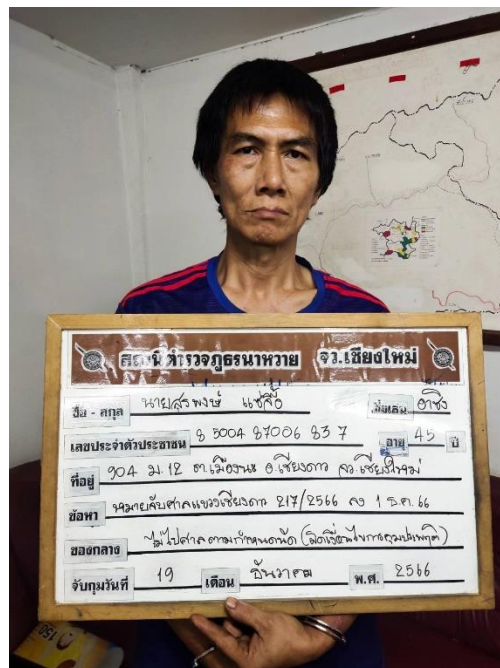 สถานีตำรวจภูธรนาหวาย จว.เชียงใหม่
ชื่อ - สกุล นายสุรพงษ์ แซ่จื้อ ชื่อเล่น อาซิง
เลขประจำตัวประชาชน 8 5004 87006 83 7 อายุ 45 ปี
ที่อยู่ 904 ม.12 ต.เมืองนะ อ.เชียงดาว จว.เชียงใหม่
ข้อหา หมายจับศาลแขวงเชียงดาว 217/2566 ลง 1 ธ.ค. 66
ของกลาง ไม่ไปศาลตามกำหนดนัด (ผิดเงื่อนไขการคุมประพฤติ)
จับกุมวันที่ 19 เดือน ธันวาคม พ.ศ. 2566
150